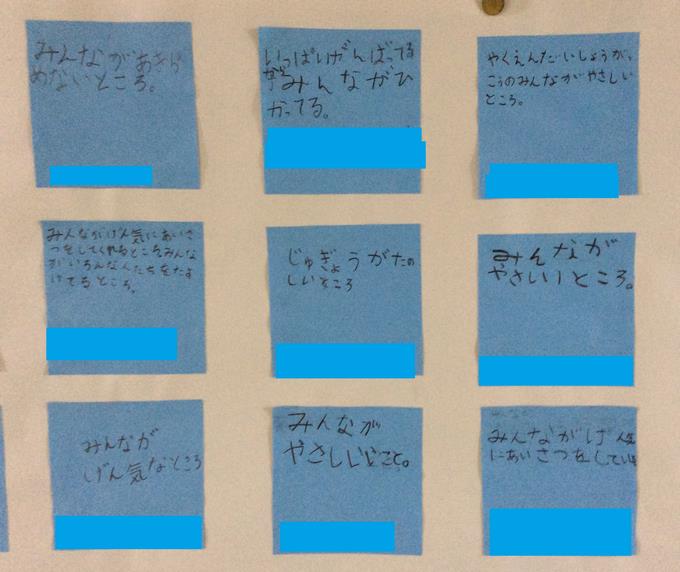 みんながあきら
めないところ。
いっぱいがんばってる
みんながひ
かってる。
やくえんだいしょうが、
こうのみんながやさしい
ところ。
みんながげん気にあいさ
つをしてくれるところみんな
がいろんな人たちをたす
けてるところ。
じゅぎょうがたの
しいところ
みんなが
やさしいところ。
みんなが
げん気なところ
みんなが
やさしいとこと。
みんながげん気
にあいさつをしている